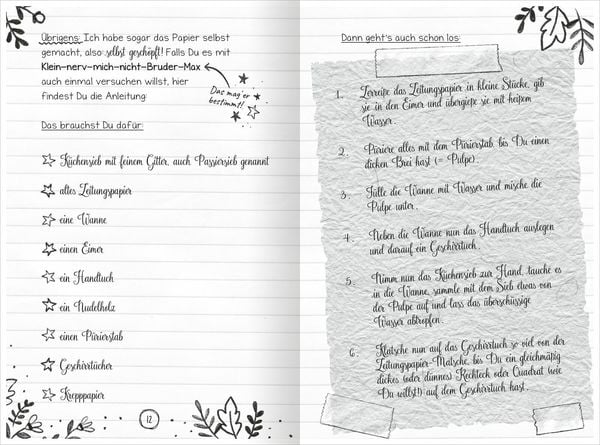 Übrigens: Ich habe sogar das Papier selbst
gemacht, also selbst geschöpft! Falls Du es mit
Klein-nerv-mich-nicht-Bruder-Max
auch einmal versuchen willst, hier
findest Du die Anleitung:
Das mag er
bestimmt!
Das brauchst Du dafür:
Küchensieb mit feinem Gitter, auch Passiersieb genannt
altes Zeitungspapier
eine Wanne
einen Eimer
ein Handtuch
ein Nudelholz
einen Pürierstab
Geschirrtücher
Krepppapier
12
Dann geht's auch schon los:
1. Zerreiße das Zeitungspapier in kleine Stücke, gib
sie in den Eimer und übergieße sie mit heißem
Wasser.
2. Püriere alles mit dem Pürierstab, bis Du einen
dicken Brei hast (= Pulpe).
3. Fülle die Wanne mit Wasser und mische die
Pulpe unter.
4. Neben die Wanne nun das Handtuch auslegen
und darauf ein Geschirrtuch.
5. Nimm nun das Küchensieb zur Hand, tauche es
in die Wanne, sammle mit dem Sieb etwas von
der Pulpe auf und lass das überschüssige
Wasser abtropfen.
6. Klatsche nun auf das Geschirrtuch so viel von der
Zeitungspapier-Matsche, bis Du ein gleichmäßig
dickes (oder dünnes) Rechteck oder Quadrat (wie
Du willst!) auf dem Geschirrtuch hast.